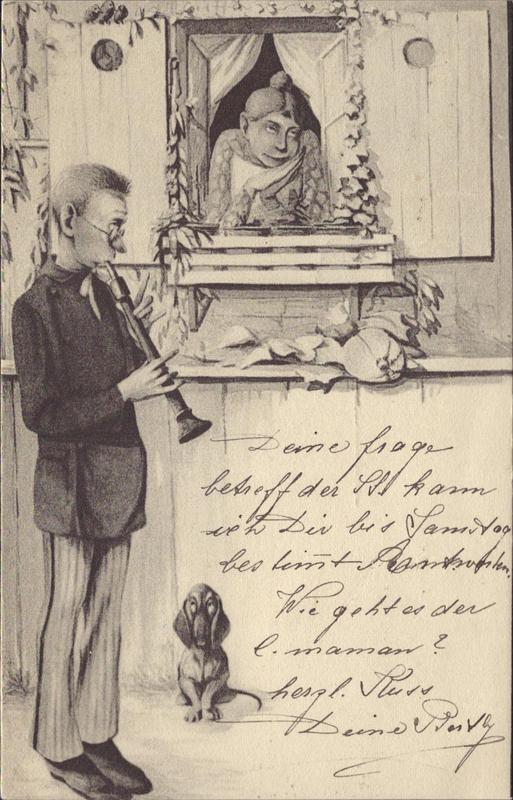 Deine frage
betreff der St. kann
ich Dir bis Samstag
bestimt
Wie geht es der
l. maman?
herzl. Kuss
Deine